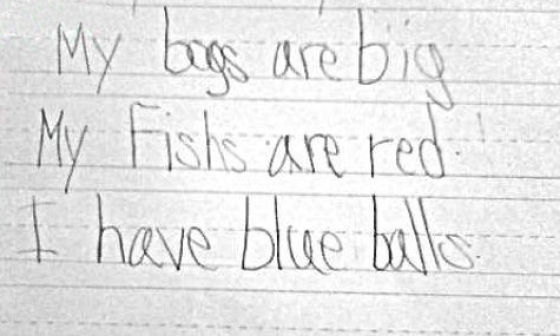 My bags are big
My Fishs are red.
I have blue balls.